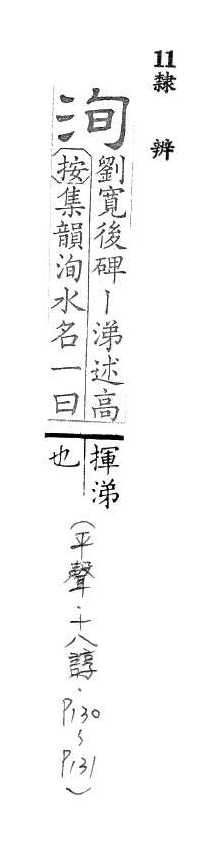 11隸辨
洵
劉寬後碑丨涕述高
按集韻洵水名一曰
揮涕
也
(平聲.十八諄.P130~P131)